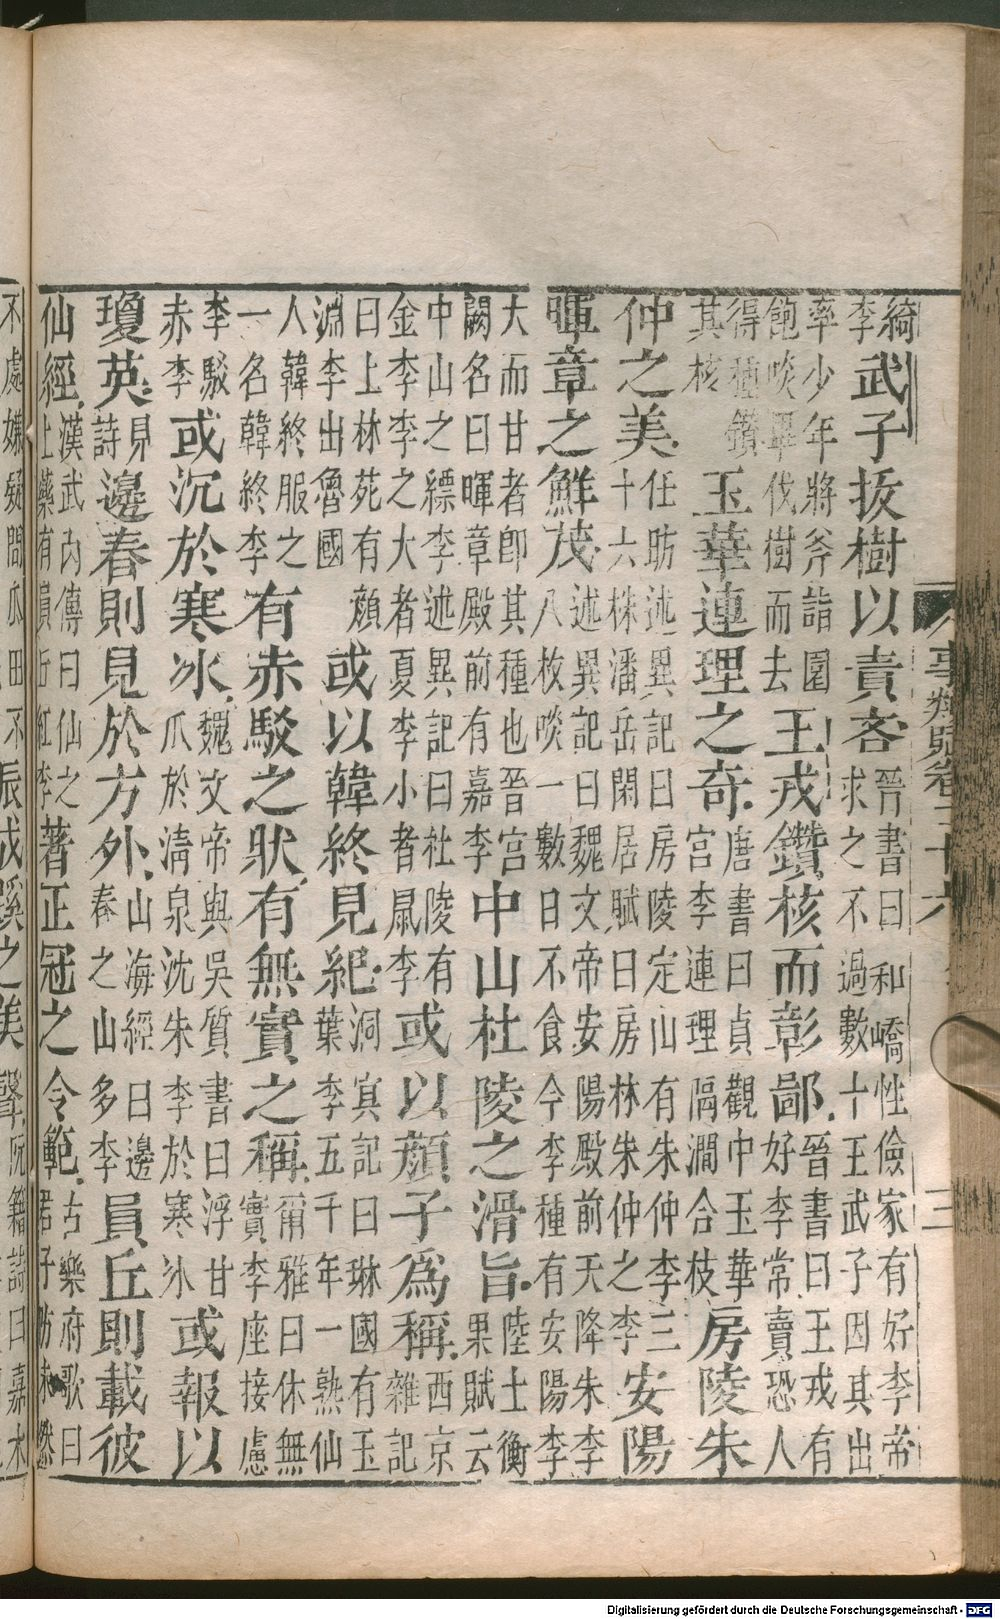 綺李武子拔樹以責吝晉書曰和嶠性儉家有好李帝求之不過數十王武子因其出
率少年將斧詣園飽啖畢伐樹而去王戎鑽核而彰鄙晉書曰王戎有好李常賣恐人
得種鑽其核玉華連理之奇唐書曰貞觀中玉華宮李連理隔澗合枝房陵朱
仲之美任昉述異記曰房陵定山有朱仲李三十六株潘岳閑居賦曰房林朱仲之李安陽
暉章之鮮茂述異記曰魏文帝安陽殿前天降朱李八枚啖一數日不食今李種有安陽李
大而甘者卽其種也晉宮闕名曰暉章殿前有嘉李中山杜陵之滑旨陸士衡果賦云
中山之縹李述異記曰杜陵有金李李之大者夏李小者鼠李或以顔子爲稱西京雜記
曰上林苑有顔淵李出魯國或以韓終見紀洞冥記曰琳國有玉葉李五千年一熟仙
人韓終服之一名韓終李有赤駁之狀有無實之稱爾雅曰休無實李座接慮
李駁赤李或沉於寒冰魏文帝與吳質書曰浮甘瓜於清泉沈朱李於寒氷或報以
瓊英見詩邊春則見於方外山海經曰邊春之山多李員丘則載彼
仙經漢武內傳曰仙之上藥有員丘紅李著正冠之令範古樂府歌曰君子防未然
不處嫌疑問瓜田不成蹊之美聲阮籍詩曰嘉木
事類賦卷二十六
三
Digitalisierung gefördert durch die Deutsche Forschungsgemeinschaft - DFG